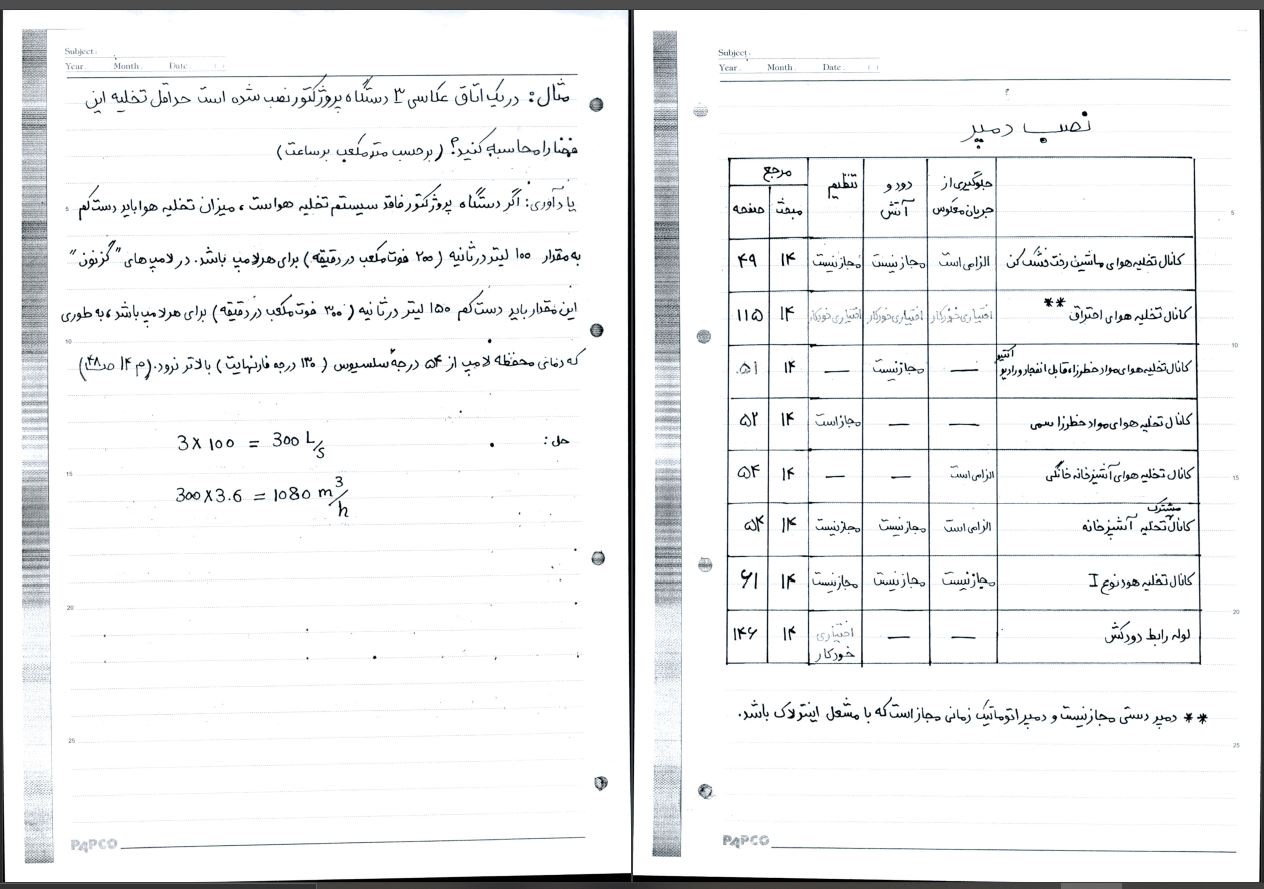 Subject :
Year . Month . Date . ( )
نصب دمپر
جلوگیری از جریان معکوس | دود و آتش | تنظیم | مرجع
مبحث | صفحه
کانال تخلیه هوای ماشین رخت خشک کن | الزامی است | مجاز نیست | مجاز نیست | ۱۴ | ۴۹
کانال تخلیه هوای احتراق ** | اختیاری خودکار | اختیاری خودکار | اختیاری خودکار | ۱۴ | ۱۱۵
کانال تخلیه هوای مواد خطرزا، قابل انفجار و رادیو اکتیو | — | مجاز نیست | — | ۱۴ | ۵۱
کانال تخلیه هوای مواد خطرزا سمی | — | — | مجاز است | ۱۴ | ۵۲
کانال تخلیه هوای آشپزخانه خانگی | الزامی است | — | — | ۱۴ | ۵۴
کانال تخلیه مشترک آشپزخانه | الزامی است | مجاز نیست | مجاز نیست | ۱۴ | ۵۴
کانال تخلیه هود نوع I | مجاز نیست | مجاز نیست | مجاز نیست | ۱۴ | ۶۱
لوله رابط دودکش | — | — | اختیاری خودکار | ۱۴ | ۱۴۶
** دمپر دستی مجاز نیست و دمپر اتوماتیک زمانی مجاز است که با مشعل اینترلاک باشد.
5
10
15
20
25
PAPCO
Subject :
Year . Month . Date . ( )
مثال: در یک اتاق عکاسی ۳ دستگاه پروژکتور نصب شده است حداقل تخلیه این
فضا را محاسبه کنید؟ (برحسب مترمکعب بر ساعت)
یادآوری: اگر دستگاه پروژکتور فاقد سیستم تخلیه هواست، میزان تخلیه هوا باید دست کم
به مقدار ۱۰۰ لیتر در ثانیه (۲۰۰ فوت مکعب در دقیقه) برای هر لامپ باشد. در لامپ های "گزنون"
این مقدار باید دست کم ۱۵۰ لیتر در ثانیه (۳۰۰ فوت مکعب در دقیقه) برای هر لامپ باشد، به طوری
که دمای محفظه لامپ از ۵۴ درجه سلسیوس (۱۳۰ درجه فارنهایت) بالاتر نرود. (م ۱۴ ص ۴۸)
حل:
3 × 100 = 300 L/s
300 × 3.6 = 1080 m³/h
5
10
15
20
25
PAPCO